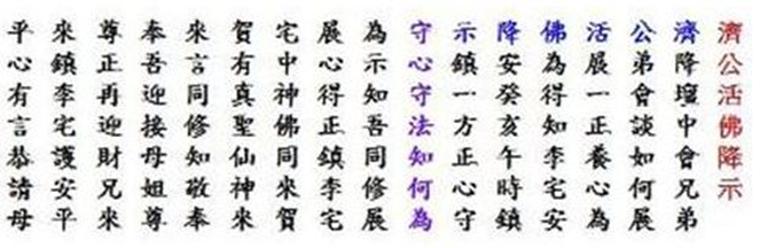 濟公活佛降示
濟降壇中會兄弟
公弟會談如何展
活展一正養心為
佛為得知李宅安
降安癸亥午時鎮
示鎮一方正心守
守心守法知何為
為示知吾同修展
展心得正鎮李宅
宅中神佛同來賀
賀有真聖仙神來
來言同修知敬奉
奉吾迎接母姐尊
尊正再迎財兄來
來鎮李宅護安平
平心有言恭請母